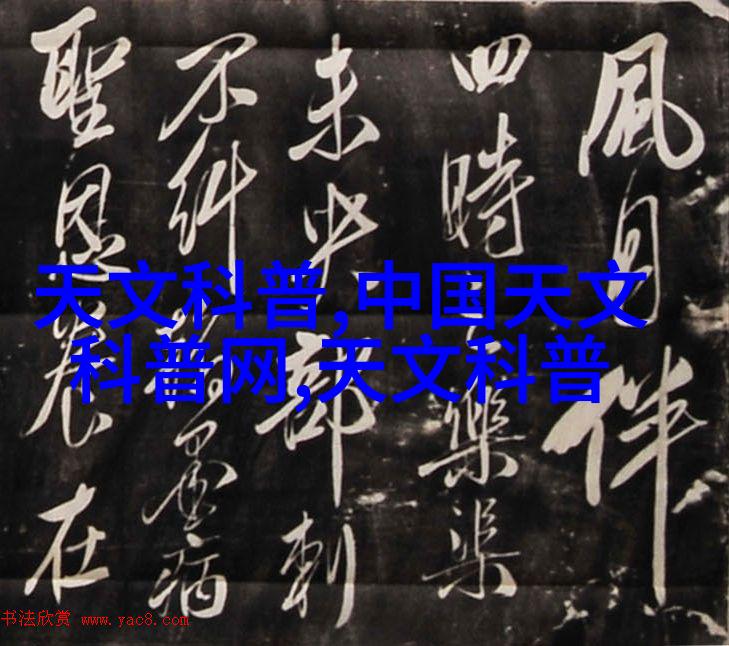 風月伴
四時樂渠
未央部刺
不糾墨病
聖恩在
天文科普,中国天文
科普网,天文科普
书法欣赏 www.yac8.com